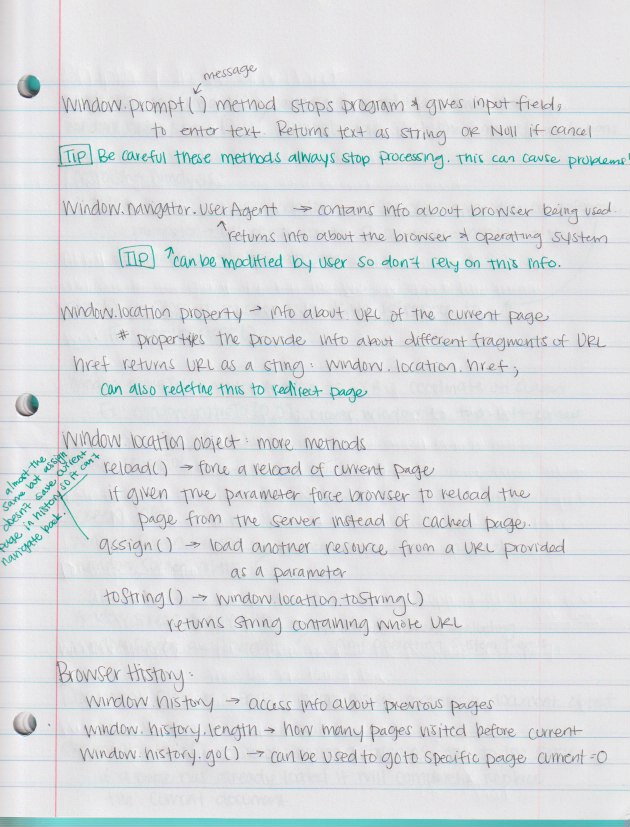 message
window.prompt() method stops program & gives input field,
to enter text Returns text as string OR Null if cancel
TIP Be careful these methods always stop processing. This can cause problems!
window.navigator.userAgent → contains info about browser being used.
returns info about the browser & operating system
TIP can be modified by user so don't rely on this info.
window.location property → info about URL of the current page
* properties the provide info about different fragments of URL
href returns URL as a sting: window.location.href;
can also redefine this to redirect page
Window location object: more methods
reload() → force a reload of current page
if given true parameter force browser to reload the
page from the server instead of cached page.
assign() → load another resource from a URL provided
as a parameter
toString() → window.location.toString()
returns string containing whole URL
almost the
same but assign
doesn't save current
page in history so it can't
navigate back.
Browser History:
window.history → access info about previous pages
window.history.length → how many pages visited before current
window.history.go() → can be used to go to specific page current=0